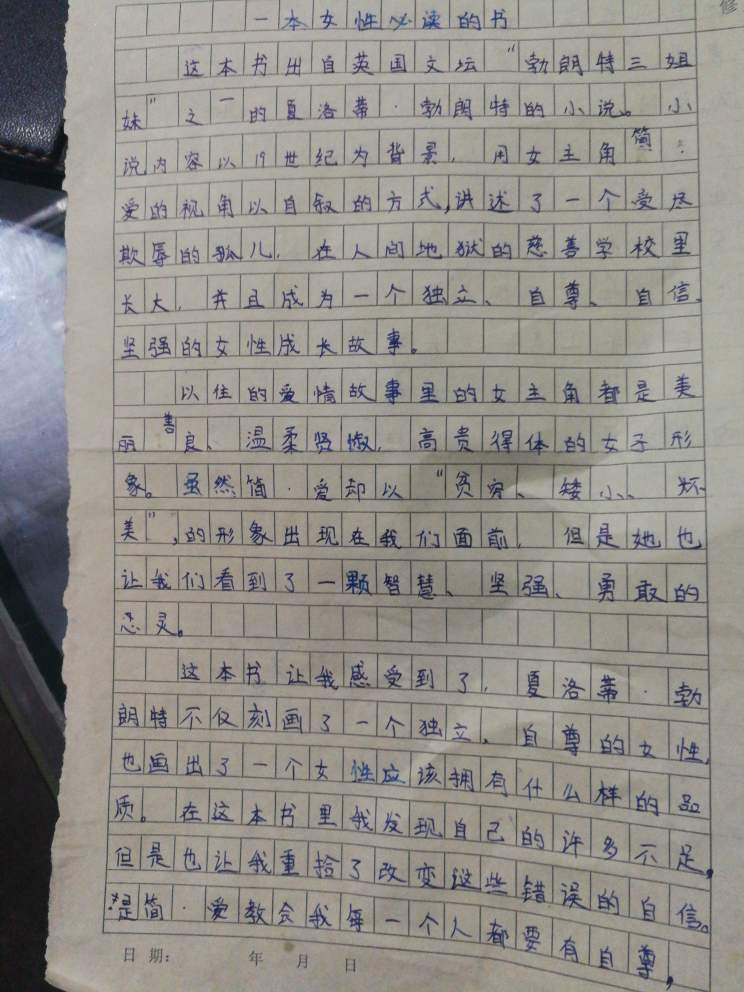 修
一本女性必读的书
这本书出自英国文坛“勃朗特三姐
妹”之一的夏洛蒂·勃朗特的小说。小
说内容以19世纪为背景，用女主角简·
爱的视角以自叙的方式，讲述了一个受尽
欺辱的孤儿，在人间地狱的慈善学校里
长大，并且成为一个独立、自尊、自信、
坚强的女性成长故事。
以住的爱情故事里的女主角都是美
丽善良、温柔贤惶，高贵得体的女子形
象。虽然简·爱却以“贫穷、矮小、
美”，的形象出现在我们面前，但是她也
让我们看到了一颗智慧、坚强、勇敢的
灵。
这本书让我感受到了，夏洛蒂·勃
朗特不仅刻画了一个独立、自尊的女性，
也画出了一个女性应该拥有什么样的品
质。在这本书里我发现自己的许多不足，
但是也让我重拾了改变这些错误的自信。
是简·爱教会我每一个人都要有自尊，
日期： 年 月 日